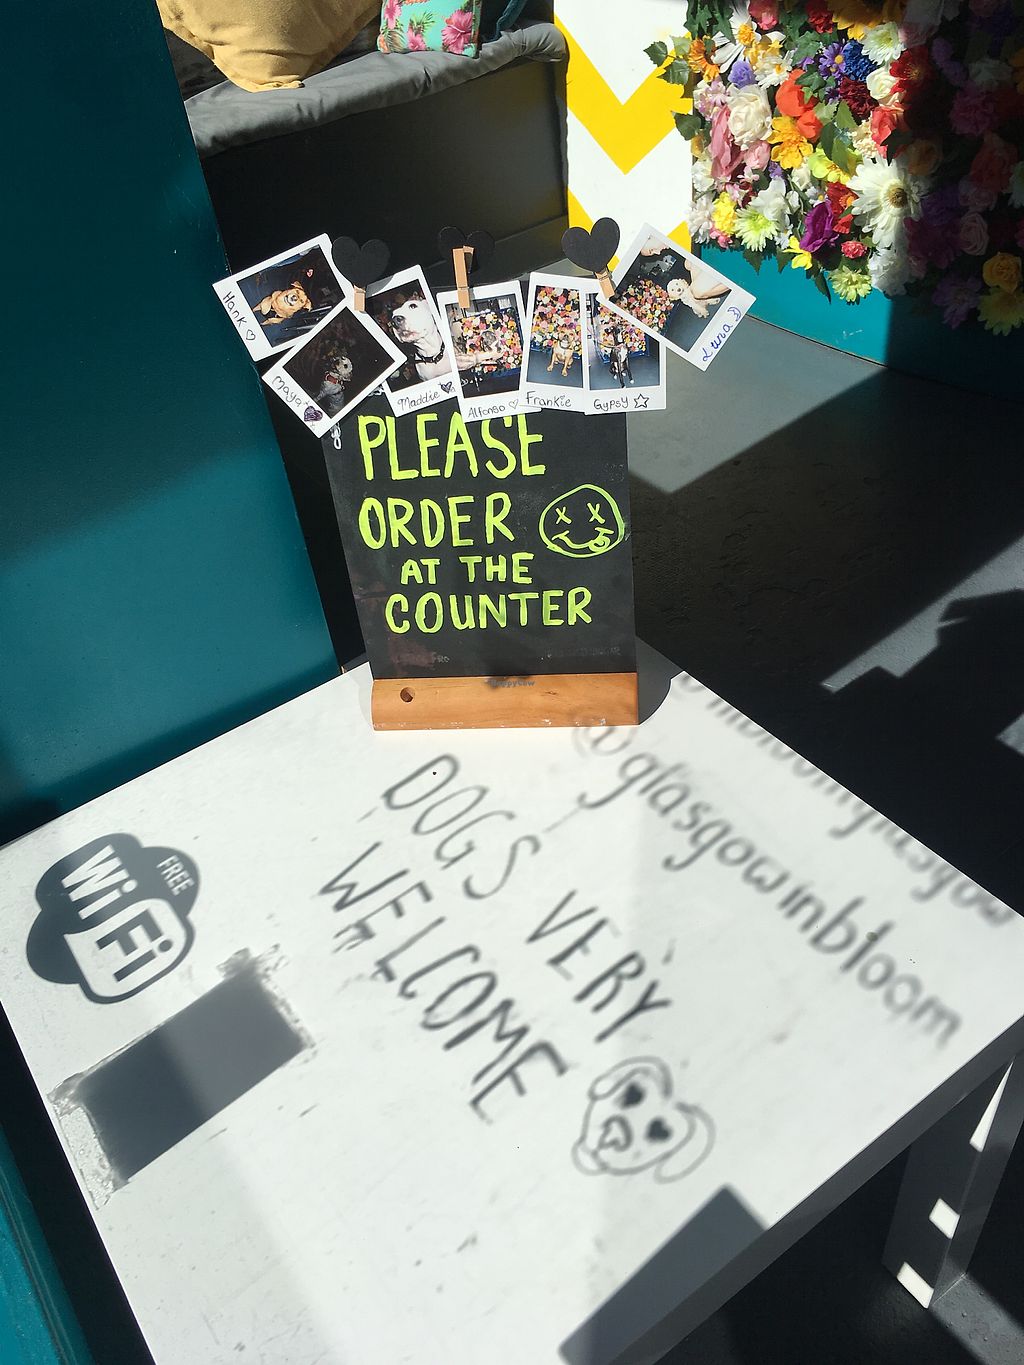 Hank
Maya
Maddie
Alfonso
Frankie
Gypsy
Luna
PLEASE
ORDER
AT THE
COUNTER
HappyCow
FREE
WiFi
DOGS VERY
WELCOME
@glasgowinbloom